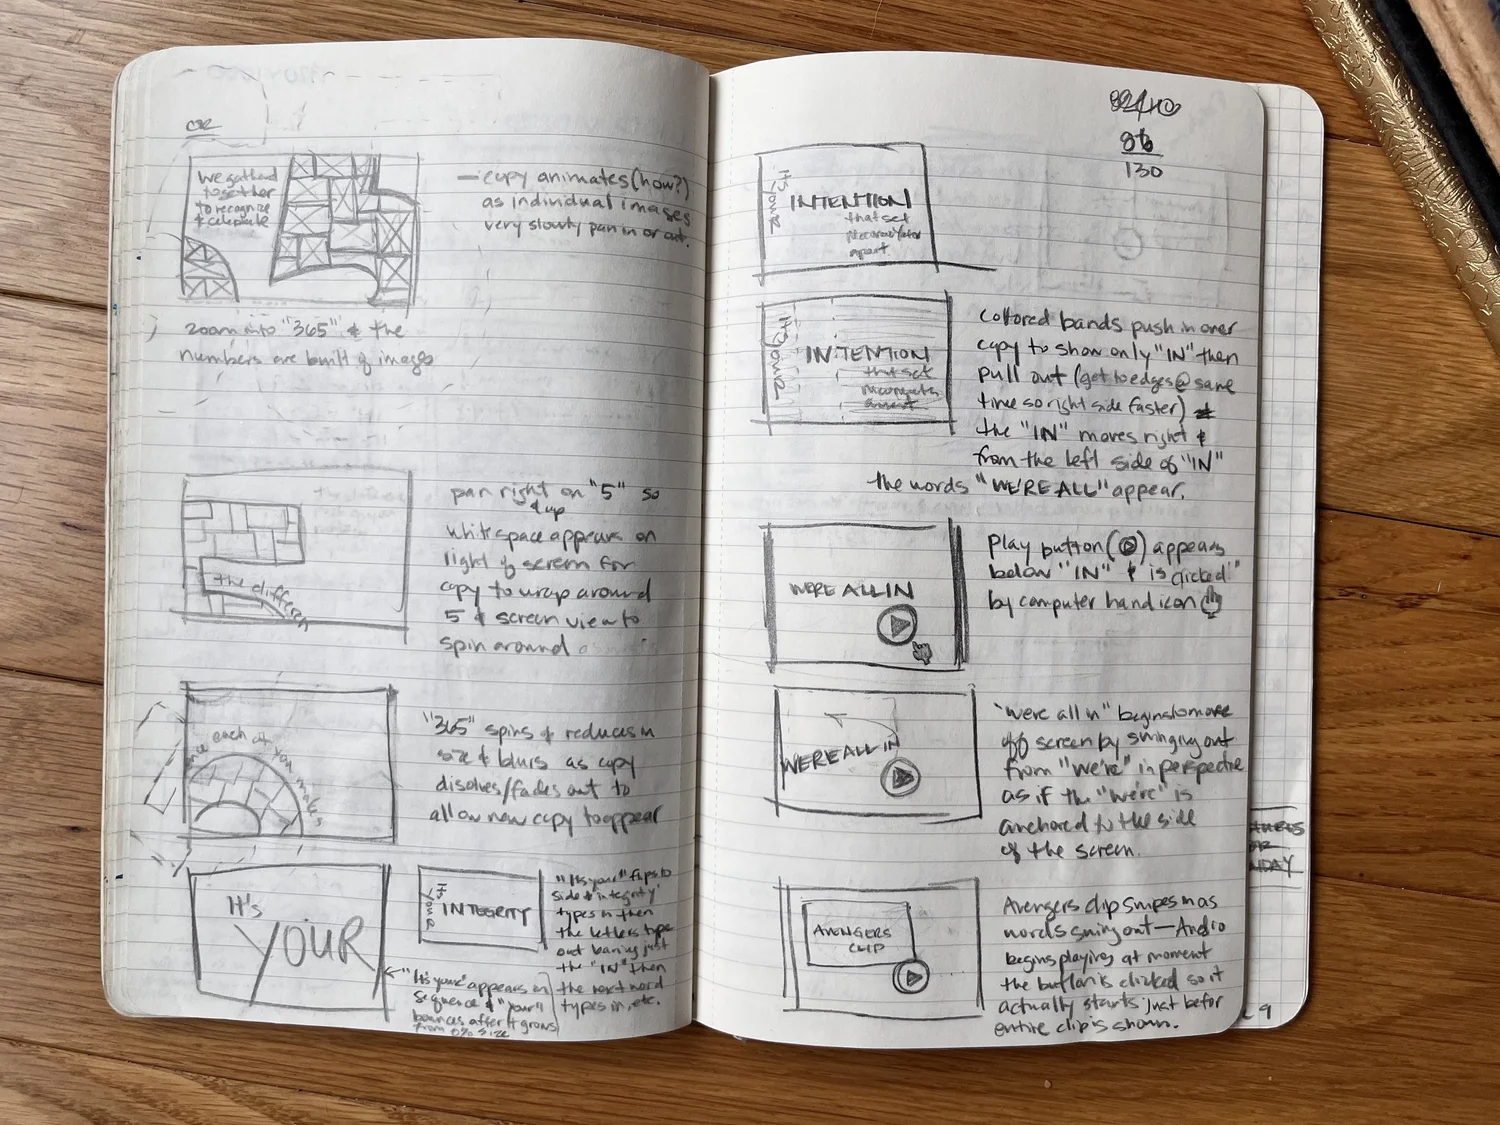 OR
We gathered
together
to recognize
& celebrate
— copy animates (how?)
as individual images
very slowly pan in or out.
zoom into "365" & the
numbers are built of images
pan right on "5" so
& up
white space appears on
right of screen for
copy to wrap around
5 & screen view to
spin around
the differen
"365" spins & reduces in
size & blurs as copy
disolves/fades out to
allow new copy to appear
each of you makes
It's
YOUR
"It's your" appears in
sequence & "your"
bounces after it grows
from 0% size
It's
your
INTEGRITY
"It's your" flips to
side & 'integrity'
types in then
the letters type
out baring just
the "IN" then
the next word
types in, etc.
86
130
It's your
INTENTION
that set
apart
It's your
INTENTION
that set
Collored bands push in over
copy to show only "IN" then
pull out (get to edges @ same
time so right side faster) &
the "IN" moves right &
from the left side of "IN"
the words "WE'RE ALL" appear.
WE'RE ALL IN
Play button (▶) appears
below "IN" & is "clicked"
by computer hand icon
WE'RE ALL IN
"we're all in" begins to move
off screen by swinging out
from "we're" in perspective
as if the "we're" is
anchored to the side
of the screen.
AVENGERS
CLIP
Avengers clip swipes in as
words swing out — Audio
begins playing at moment
the button is clicked so it
actually starts just before
entire clip is shown.
9